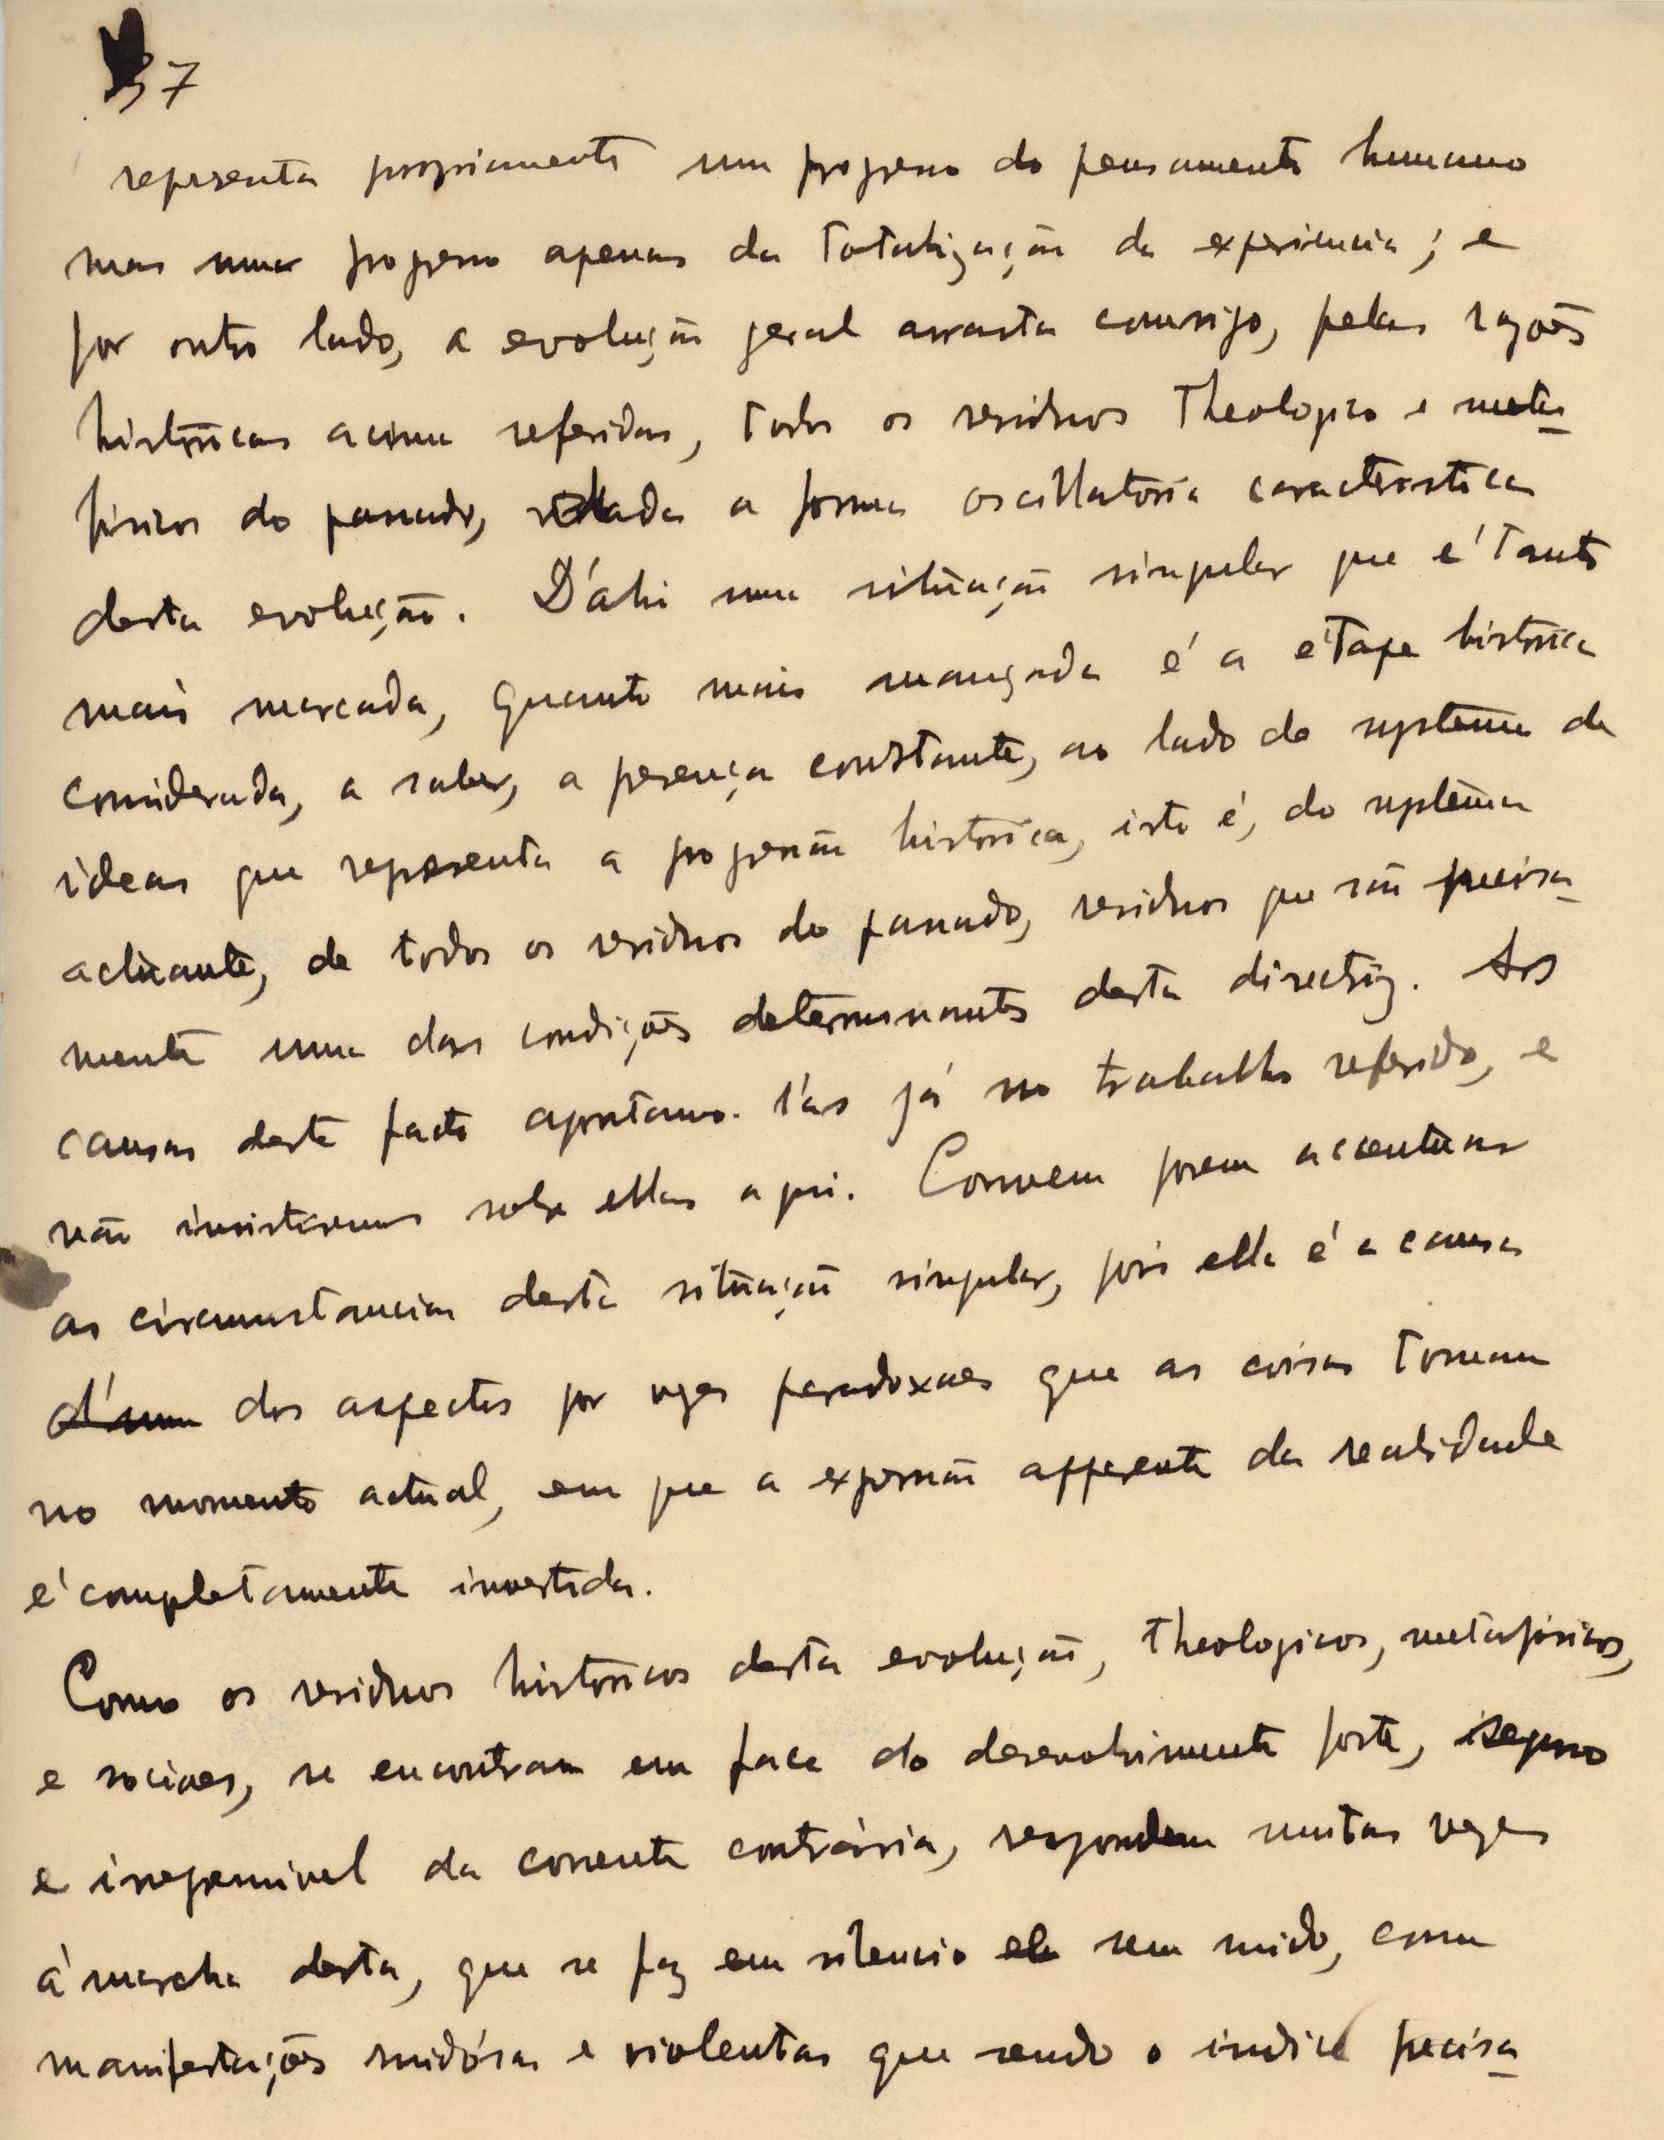 37
representa propriamente um progresso do pensamento humano
mas um progresso apenas da totalização da experiencia; e
por outro lado, a evolução geral arrasta comsigo, pelas razões
históricas acima referidas, todos os residuos theologicos e meta-
fisicos do passado, dada a forma oscillatoria caracteristica
desta evolução. D'ahi uma situação singular que é tanto
mais marcada, quanto mais avançada é a étape histórica
considerada, a saber, a presença constante, ao lado do systema de
ideas que representa a progressão histórica, isto é, do systema
actuante, de todos os residuos do passado, residuos que são precisa-
mente uma das condições determinantes desta directriz. As
causas deste facto apontamo-l'as já no trabalho referido, e
não insistiremos sobre ellas aqui. Convem porem accentuar
as circumstancias desta situação singular, pois ella é a causa
d'um dos aspectos por vezes paradoxaes que as coisas tomam
no momento actual, em que a expressão apparente da realidade
é completamente invertida.
Como os residuos historicos desta evolução, theologicos, metafisicos,
e sociaes, se encontram em face do desenvolvimento forte, seguro
e irrepremivel da corrente contrária, respondem muitas vezes
á marcha desta, que se faz em silencio e sem ruido, com
manifestações ruidósas e violentas que sendo o indice precisa-